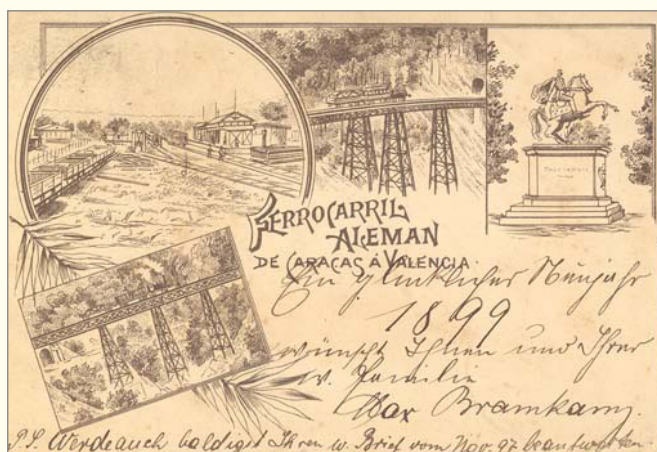 FERROCARRIL
ALEMAN
DE CARACAS Á VALENCIA
Ein glücklicher Neujahr
1899
wünscht Ihnen und Ihrer
w. Familie
Max Bramkamp.
P.S. Werde auch baldigst Ihren w. Brief vom Nov. 97 beantworten.